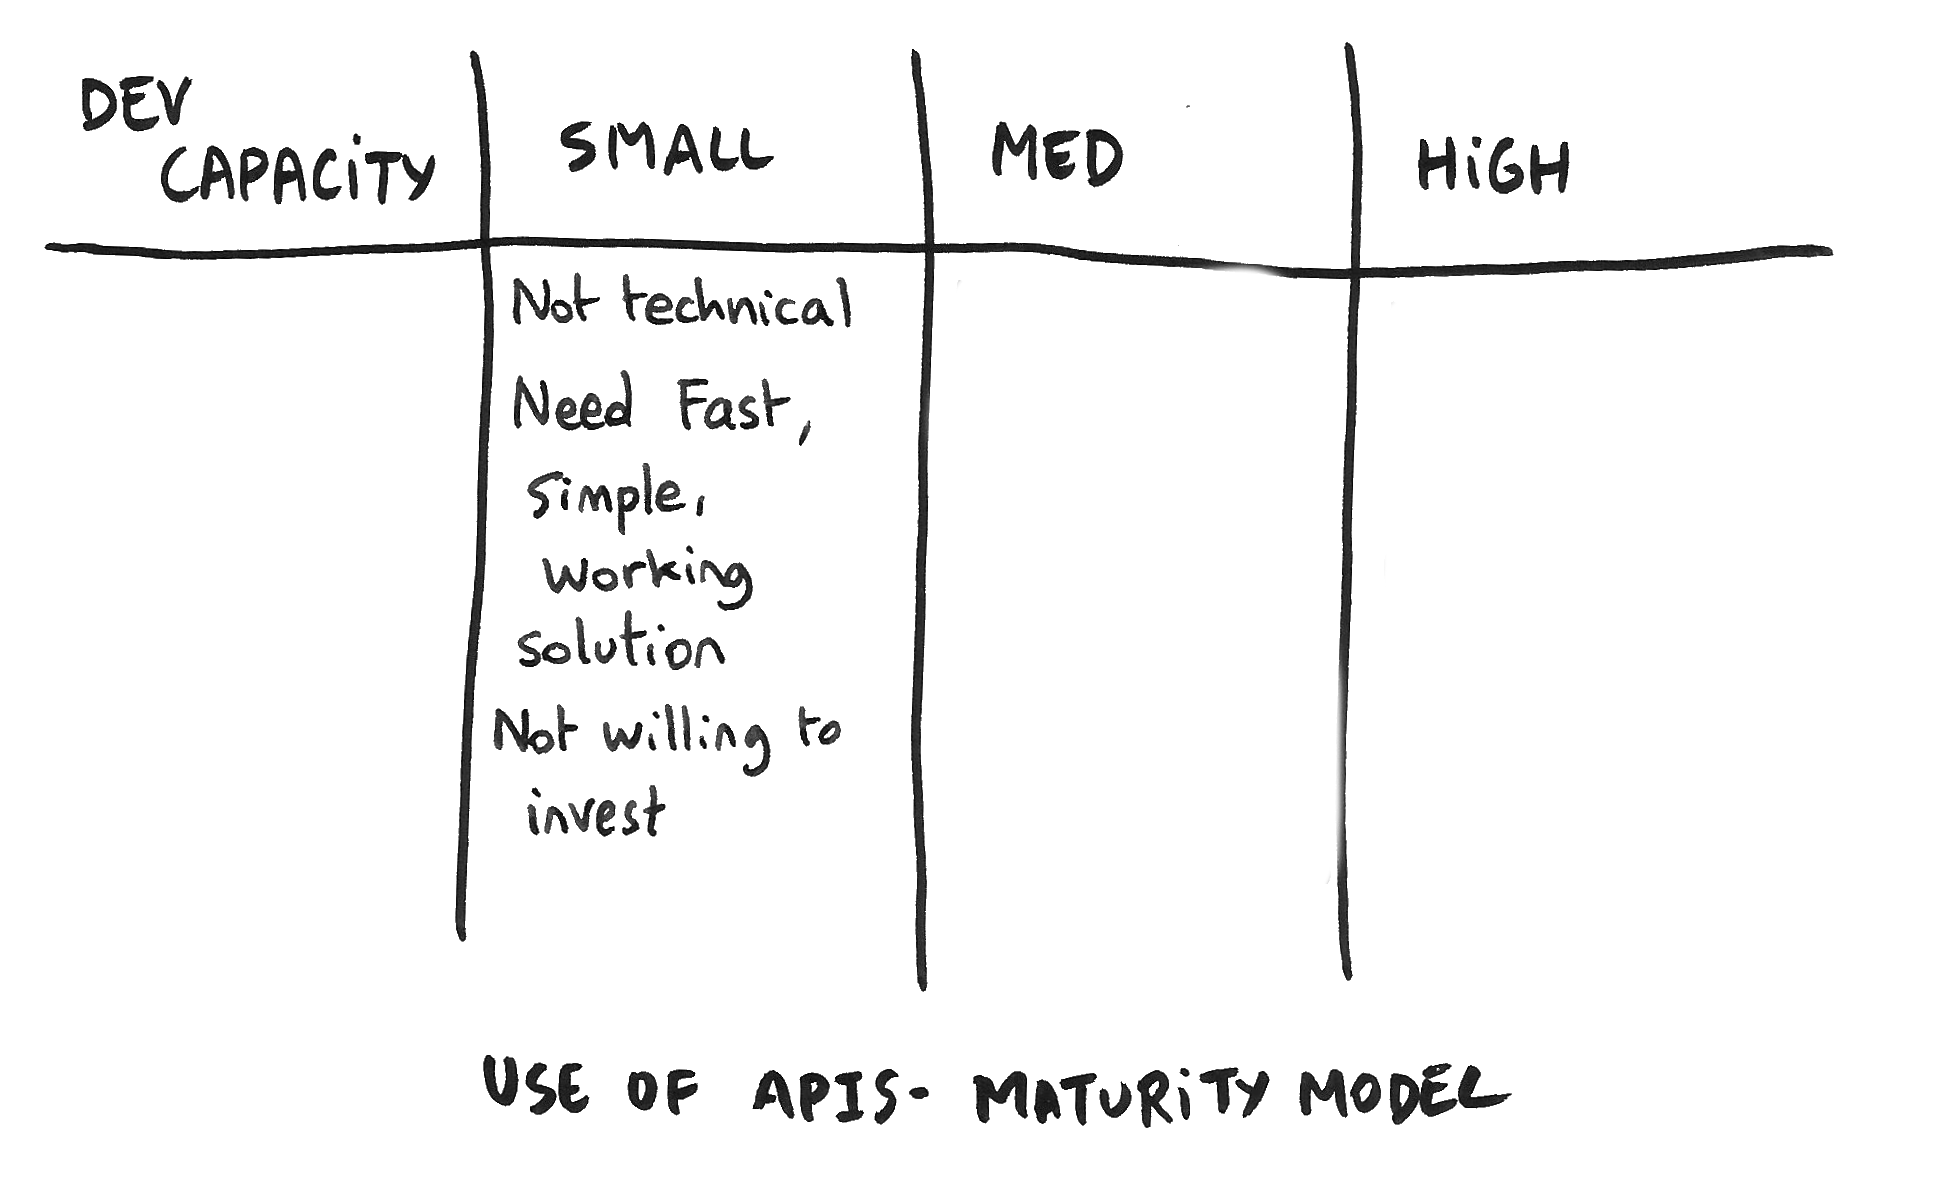 DEV
CAPACiTY
SMALL
MED
HiGH
Not technical
Need Fast,
Simple,
Working
solution
Not willing to
invest
USE OF APIS- MATURiTY MODEL